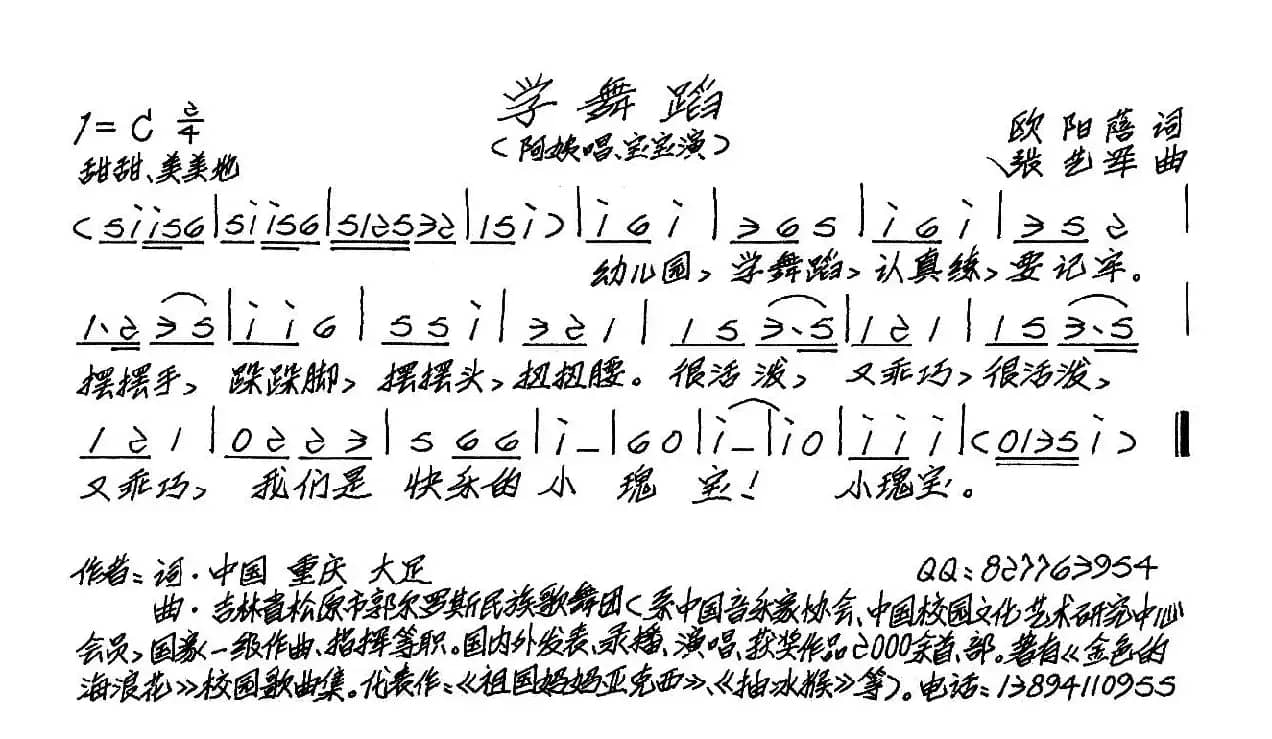 学舞蹈
1=C 2/4
(阿姨唱、宝宝演)
欧阳蓓 词
甜甜、美美地
张艺军 曲
(5i i56|5i i56|512532|15i)|i6i|365|i6i|352|
幼儿园,学舞蹈,认真练,要记牢。
1.2 35|ii6|55i|321|15 3.5|121|15 3.5|
摆摆手,跺跺脚,摆摆头,扭扭腰。很活泼,又乖巧,很活泼,
121|0223|566|i-|60|i-|i0|iii|(0135i)‖
又乖巧,我们是快乐的小瑰宝!小瑰宝。
作者:词·中国 重庆 大足
QQ:827763954
曲·吉林省松原市郭尔罗斯民族歌舞团(系中国音乐家协会、中国校园文化艺术研究中心
会员,国家一级作曲、指挥等职。国内外发表、录播、演唱、获奖作品2000余首、部。著有《金色的
海浪花》校园歌曲集。代表作:《祖国妈妈亚克西》、《抽冰猴》等)。电话:13894110955